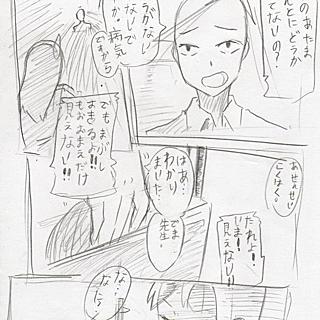 のあたま
んとにどうか
てないの？
うがなし
ないで
か。病気
ですから
でもまぶし
すぎるよ!!
もおおまえだけ
見えない!!
あせんせい
こくはく。
はあ…
わかり
ました…
でま
先生。
たれよ!
いま!
見えない!!
な…
なにン